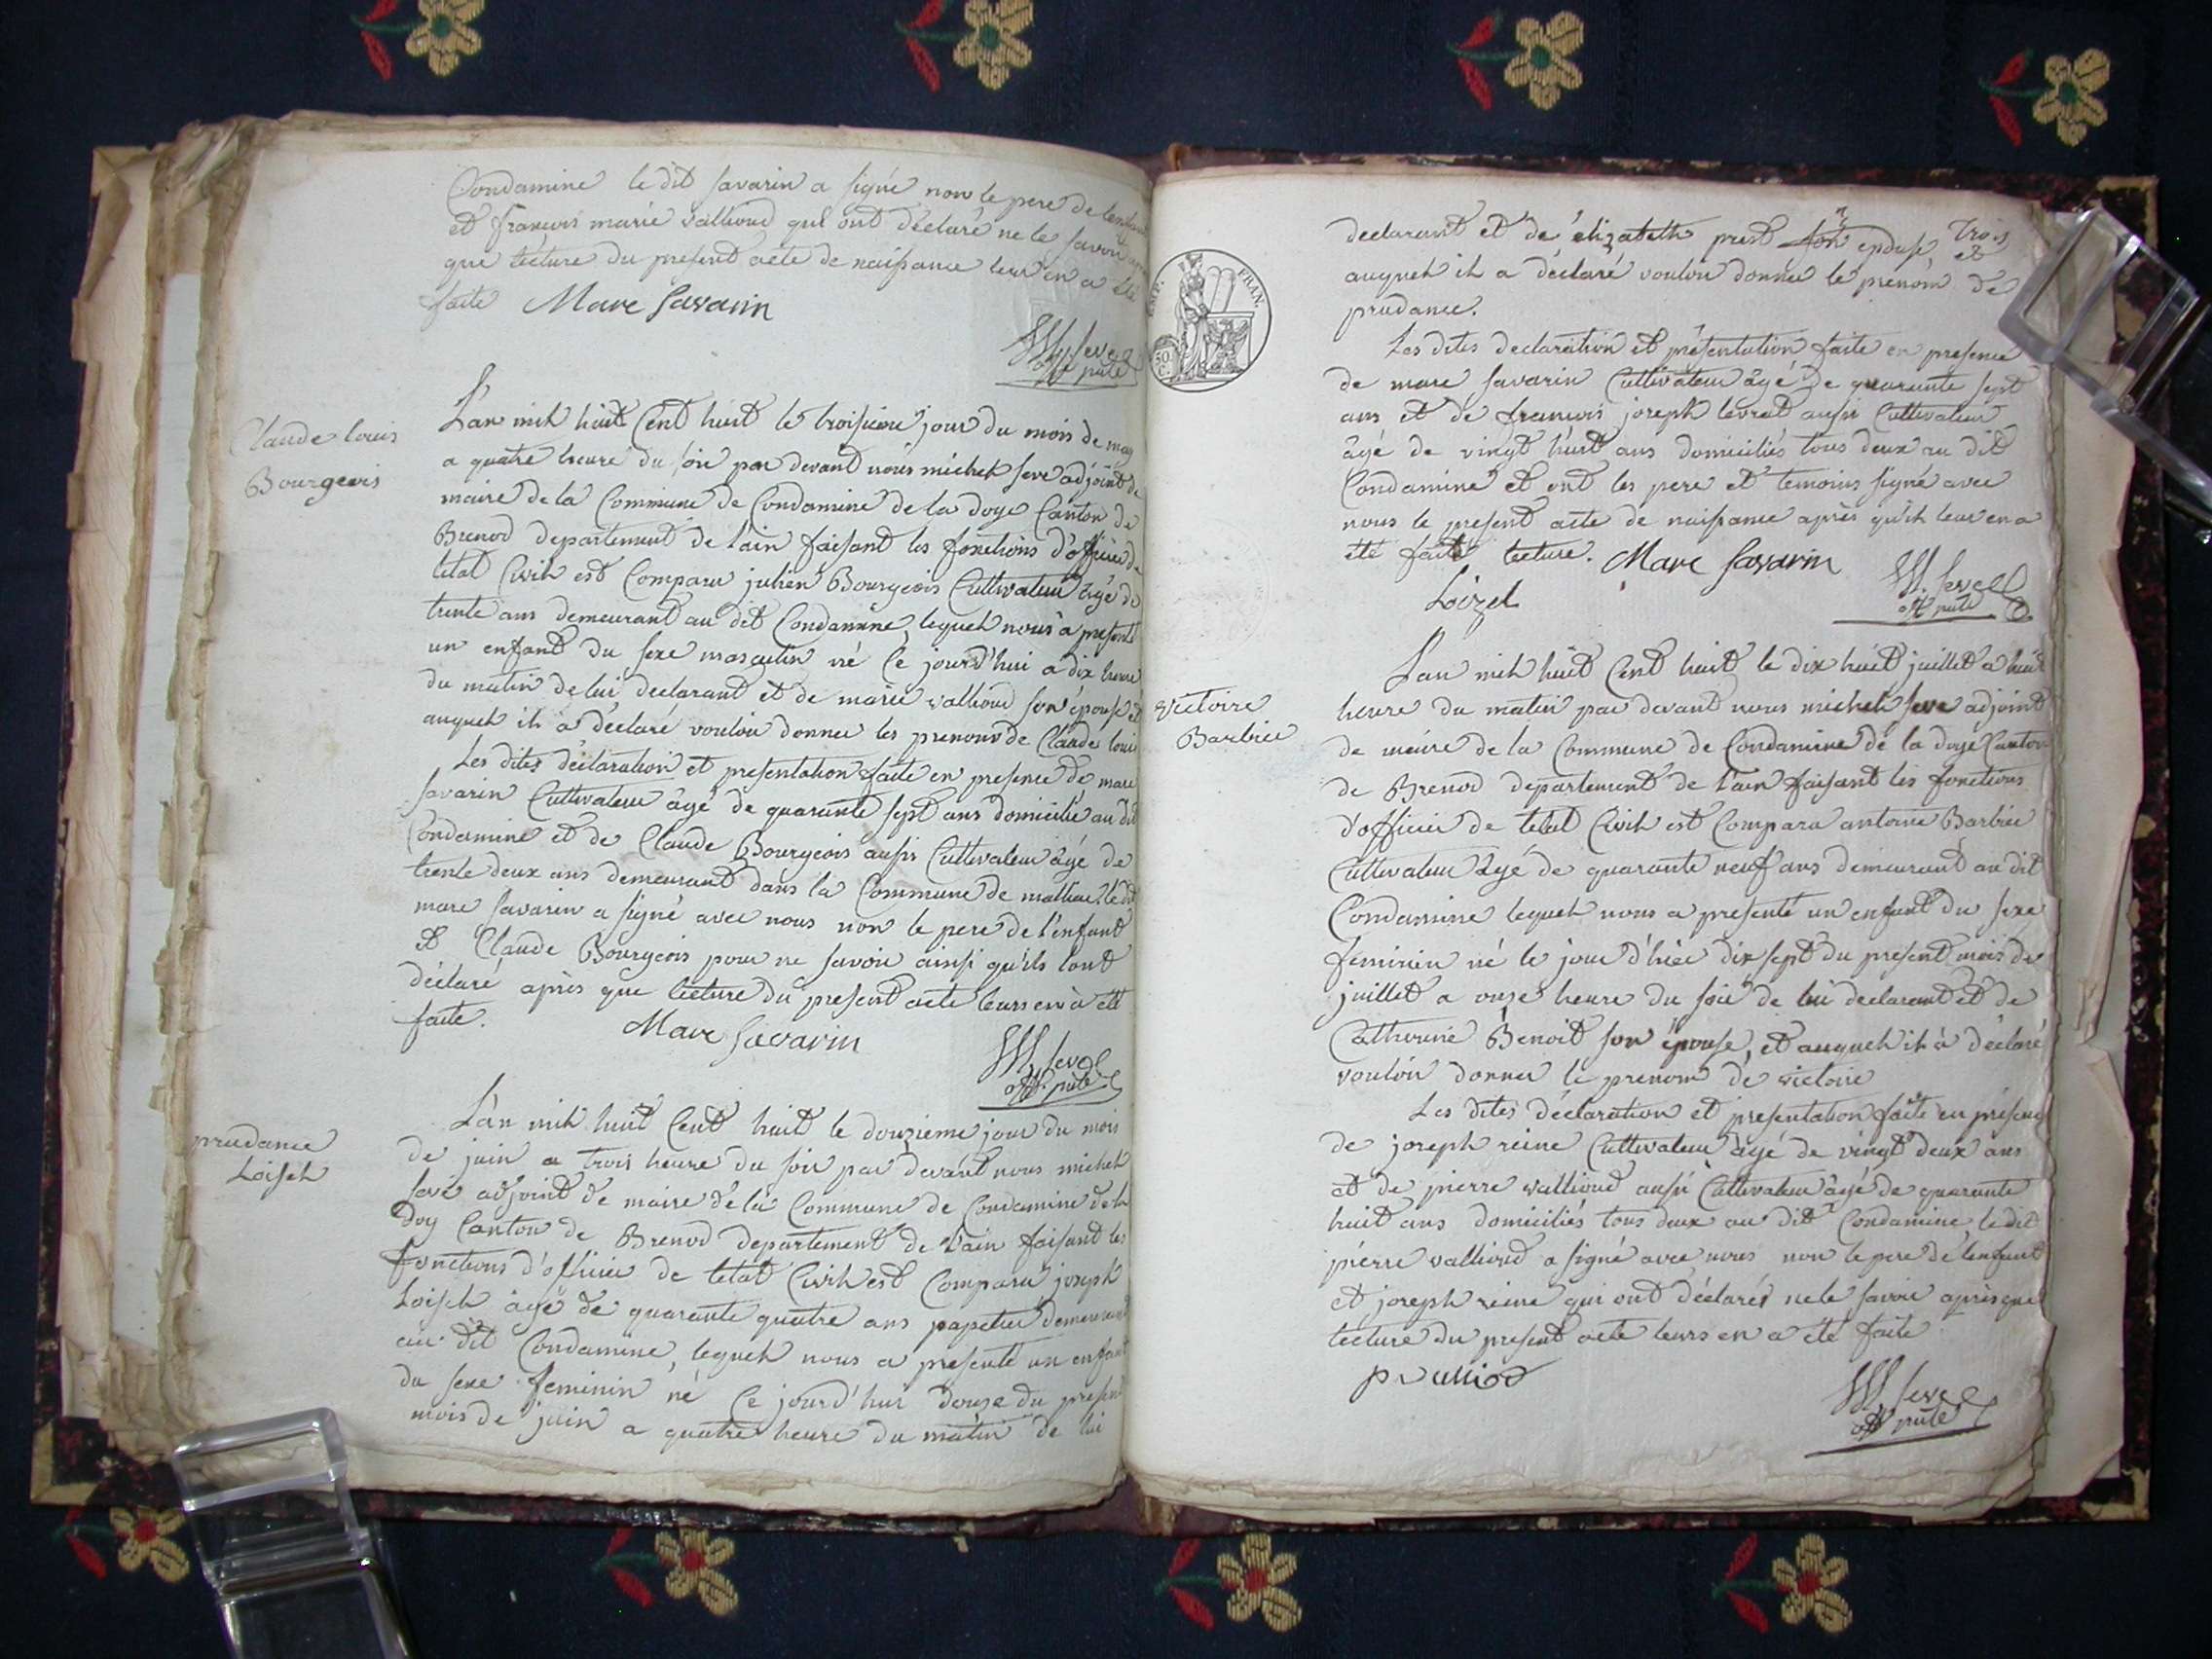 Condamine le dit savarin a signé non le pere de lenfant
et francois marie vallioud qui ont déclaré ne le savoir après
que lecture du present acte de naissance leur en a été
faite Marc Savarin
M Seve
off pub
Claude louis
Bourgeois
L'an mil huit Cent huit le troisieme jour du mois de may
a quatre heure du soir par devant nous michel seve adjoint de
maire de la Commune de Condamine de la doye Canton de
Brenod departement de lain faisant les fonctions d'officier de
letat Civil est Comparu julien Bourgeois Cultivateur âgé de
trente ans demeurant au dit Condamine, lequel nous a presenté
un enfant du sexe masculin né Ce jourd'hui a dix heure
du matin de lui declarant et de marie vallioud son épouse et
auquel il a déclaré vouloir donner les prenoms de Claude louis
Les dites déclaration et presentation faite en presence de marc
savarin Cultivateur âgé de quarante sept ans domicilié au dit
Condamine et de Claude Bourgeois aussi Cultivateur âgé de
trente deux ans demeurant dans la Commune de le dit
marc savarin a signé avec nous non le pere de l'enfant
et Claude Bourgeois pour ne savoir ainsi qu'ils lont
déclaré après que lecture du present acte leurs en à été
faite. Marc Savarin
M Seve
off. pub
prudance
Loisel
L'an mil huit Cent huit le douzieme jour du mois
de juin a trois heure du soir par devant nous michel
seve adjoint de maire de la Commune de Condamine de la
doy Canton de Brenod departement de l'ain faisant les
fonctions d'officier de letat Civil est Comparu joseph
Loisel âgé de quarante quatre ans papetier demeurant
au dit Condamine, lequel nous a presenté un enfant
du sexe feminin né Ce jourd'hui douze du present
mois de juin a quatre heure du matin de lui
trois
declarant et de élizabeth prost son epouse et
auquel il a déclaré vouloir donner le prenom de
prudance.
EMP. FRAN.
50. C.
Les dites declaration et présentation faite en presence
de marc savarin Cultivateur âgé de quarante sept
ans et de francois joseph levrat aussi Cultivateur
âgé de vingt huit ans domiciliés tous deux au dit
Condamine et ont les pere et temoins signé avec
nous le present acte de naissance après qu'il leur en a
été faite lecture. Marc Savarin
Loizel
M. Seve
off pub
victoire
Barbier
L'an mil huit Cent huit le dix huit juillet a huit
heure du matin par devant nous michel seve adjoint
de maire de la Commune de Condamine de la doye Canton
de Brenod departement de l'ain faisant les fonctions
d'officier de letat Civil est Comparu antoine Barbier
Cultivateur âgé de quarante neuf ans demeurant au dit
Condamine lequel nous a presenté un enfant du sexe
feminin né le jour d'hier dix sept du present mois de
juillet a onze heure du soir de lui declarant et de
Catherine Benoit son épouse, et auquel il à déclaré
vouloir donner le prenom de victoire
Les dites déclaration et presentation faite en présence
de joseph reine Cultivateur âgé de vingt deux ans
et de pierre vallioud aussi Cultivateur âgé de quarante
huit ans domiciliés tous deux au dit Condamine le dit
pierre vallioud a signé avec nous non le pere de lenfant
et joseph reine qui ont déclarés ne le savoir après que
lecture du present acte leurs en a été faite
M Seve
off pub